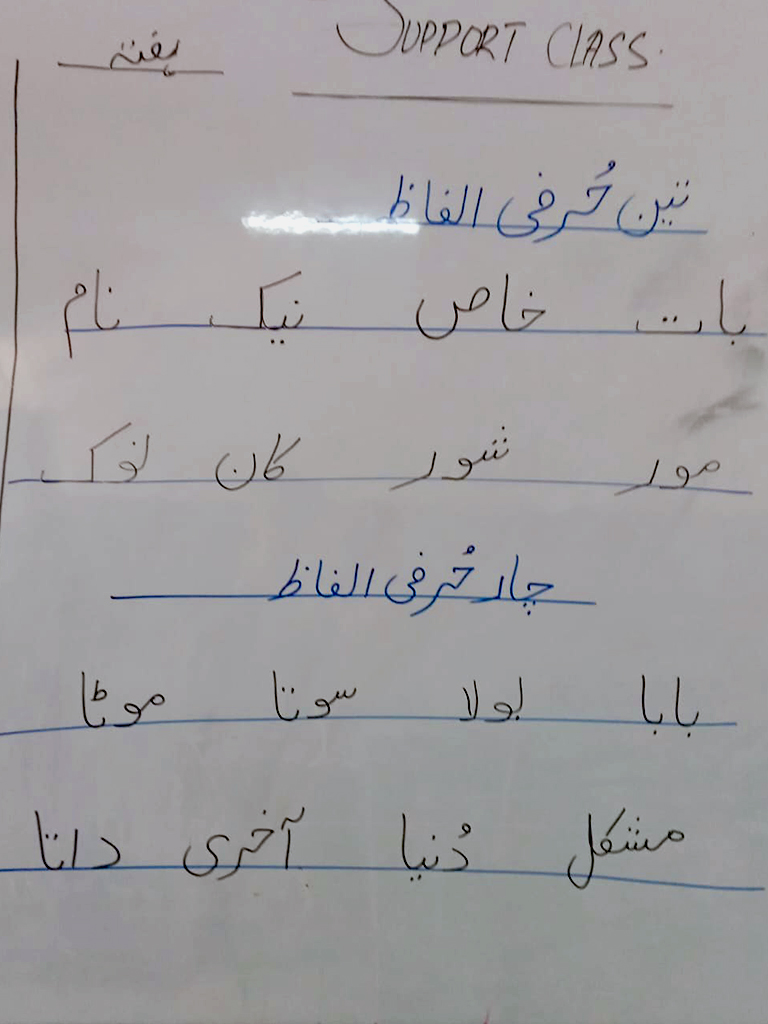 SUPPORT CLASS.
ہفتہ
تین حُرفی الفاظ
بات خاص نیک نام
مور شور کان نوک
چار حُرفی الفاظ
بابا بولا سوتا موٹا
مشکل دُنیا آخری داتا